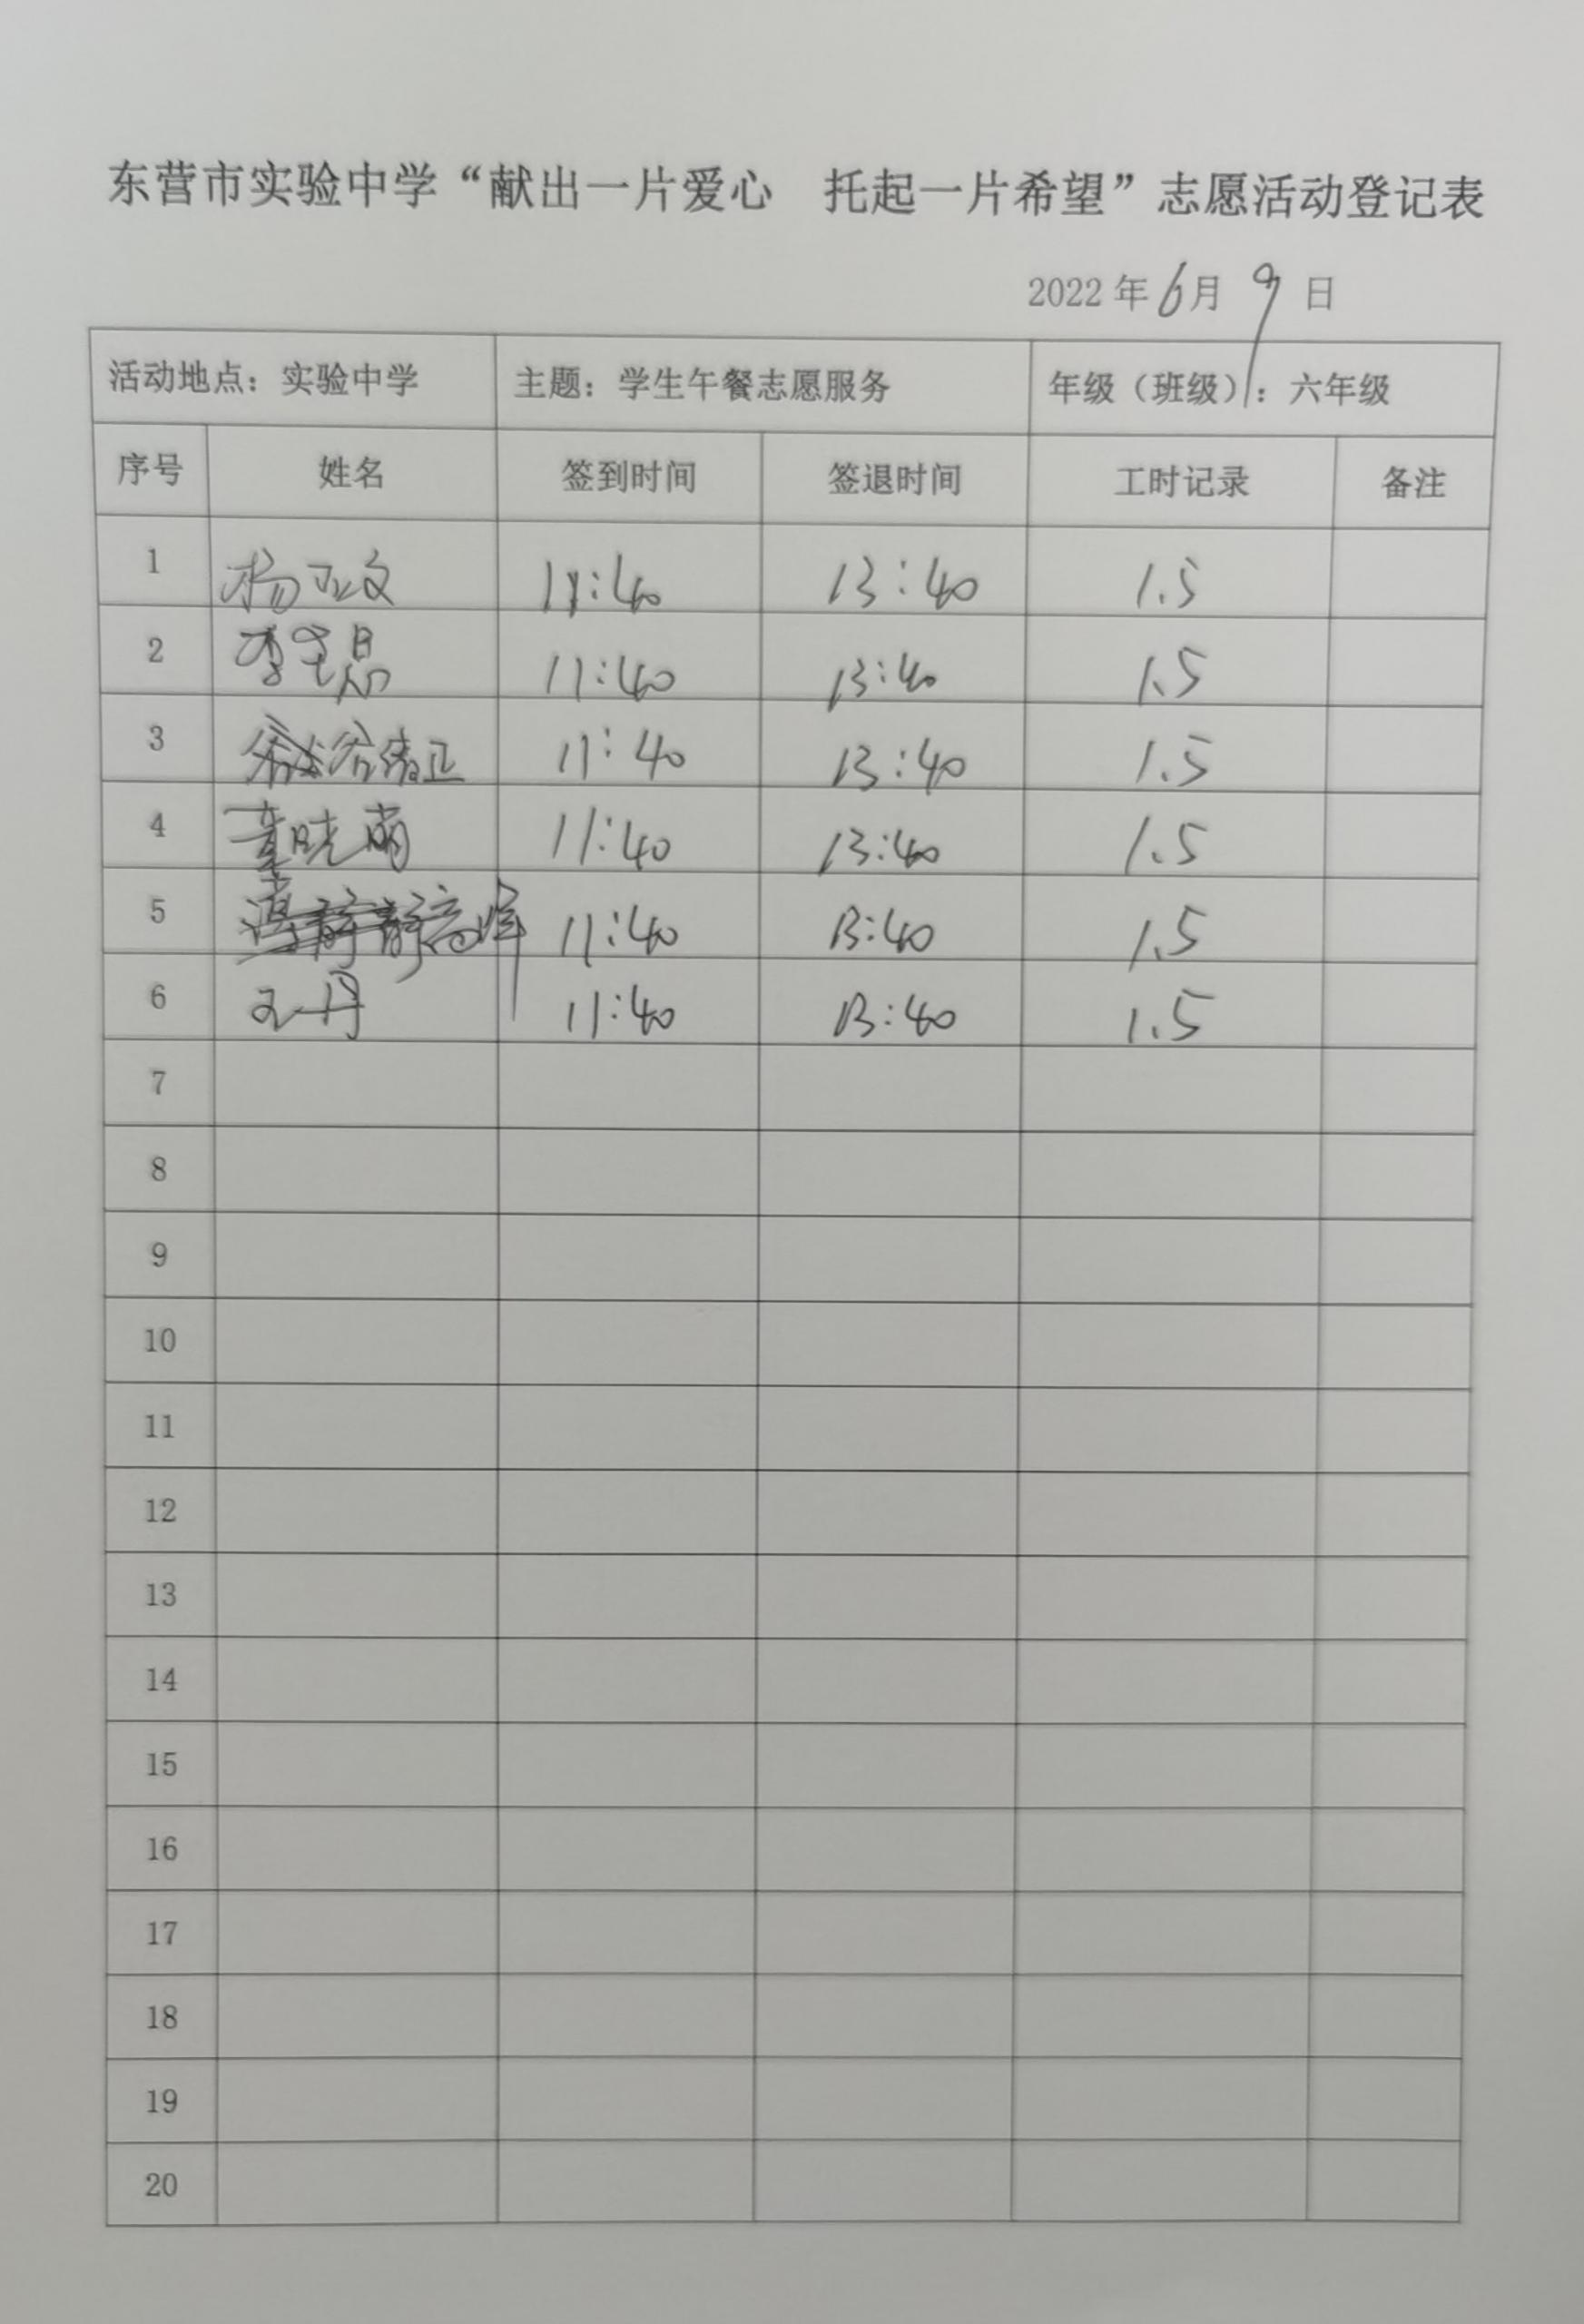 东营市实验中学“献出一片爱心 托起一片希望”志愿活动登记表
2022 年 6 月 9 日
活动地点：实验中学 主题：学生午餐志愿服务 年级（班级）：六年级
序号 姓名 签到时间 签退时间 工时记录 备注
1 杨亚文 11:40 13:40 1.5
2 李 11:40 13:40 1.5
3 11:40 13:40 1.5
4 童晓萌 11:40 13:40 1.5
5 高峰 11:40 13:40 1.5
6 王丹 11:40 13:40 1.5
7
8
9
10
11
12
13
14
15
16
17
18
19
20